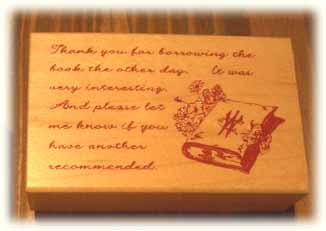 Thank you for borrowing the
book the other day. It was
very interesting.
And please let
me know if you
have another
recommended.